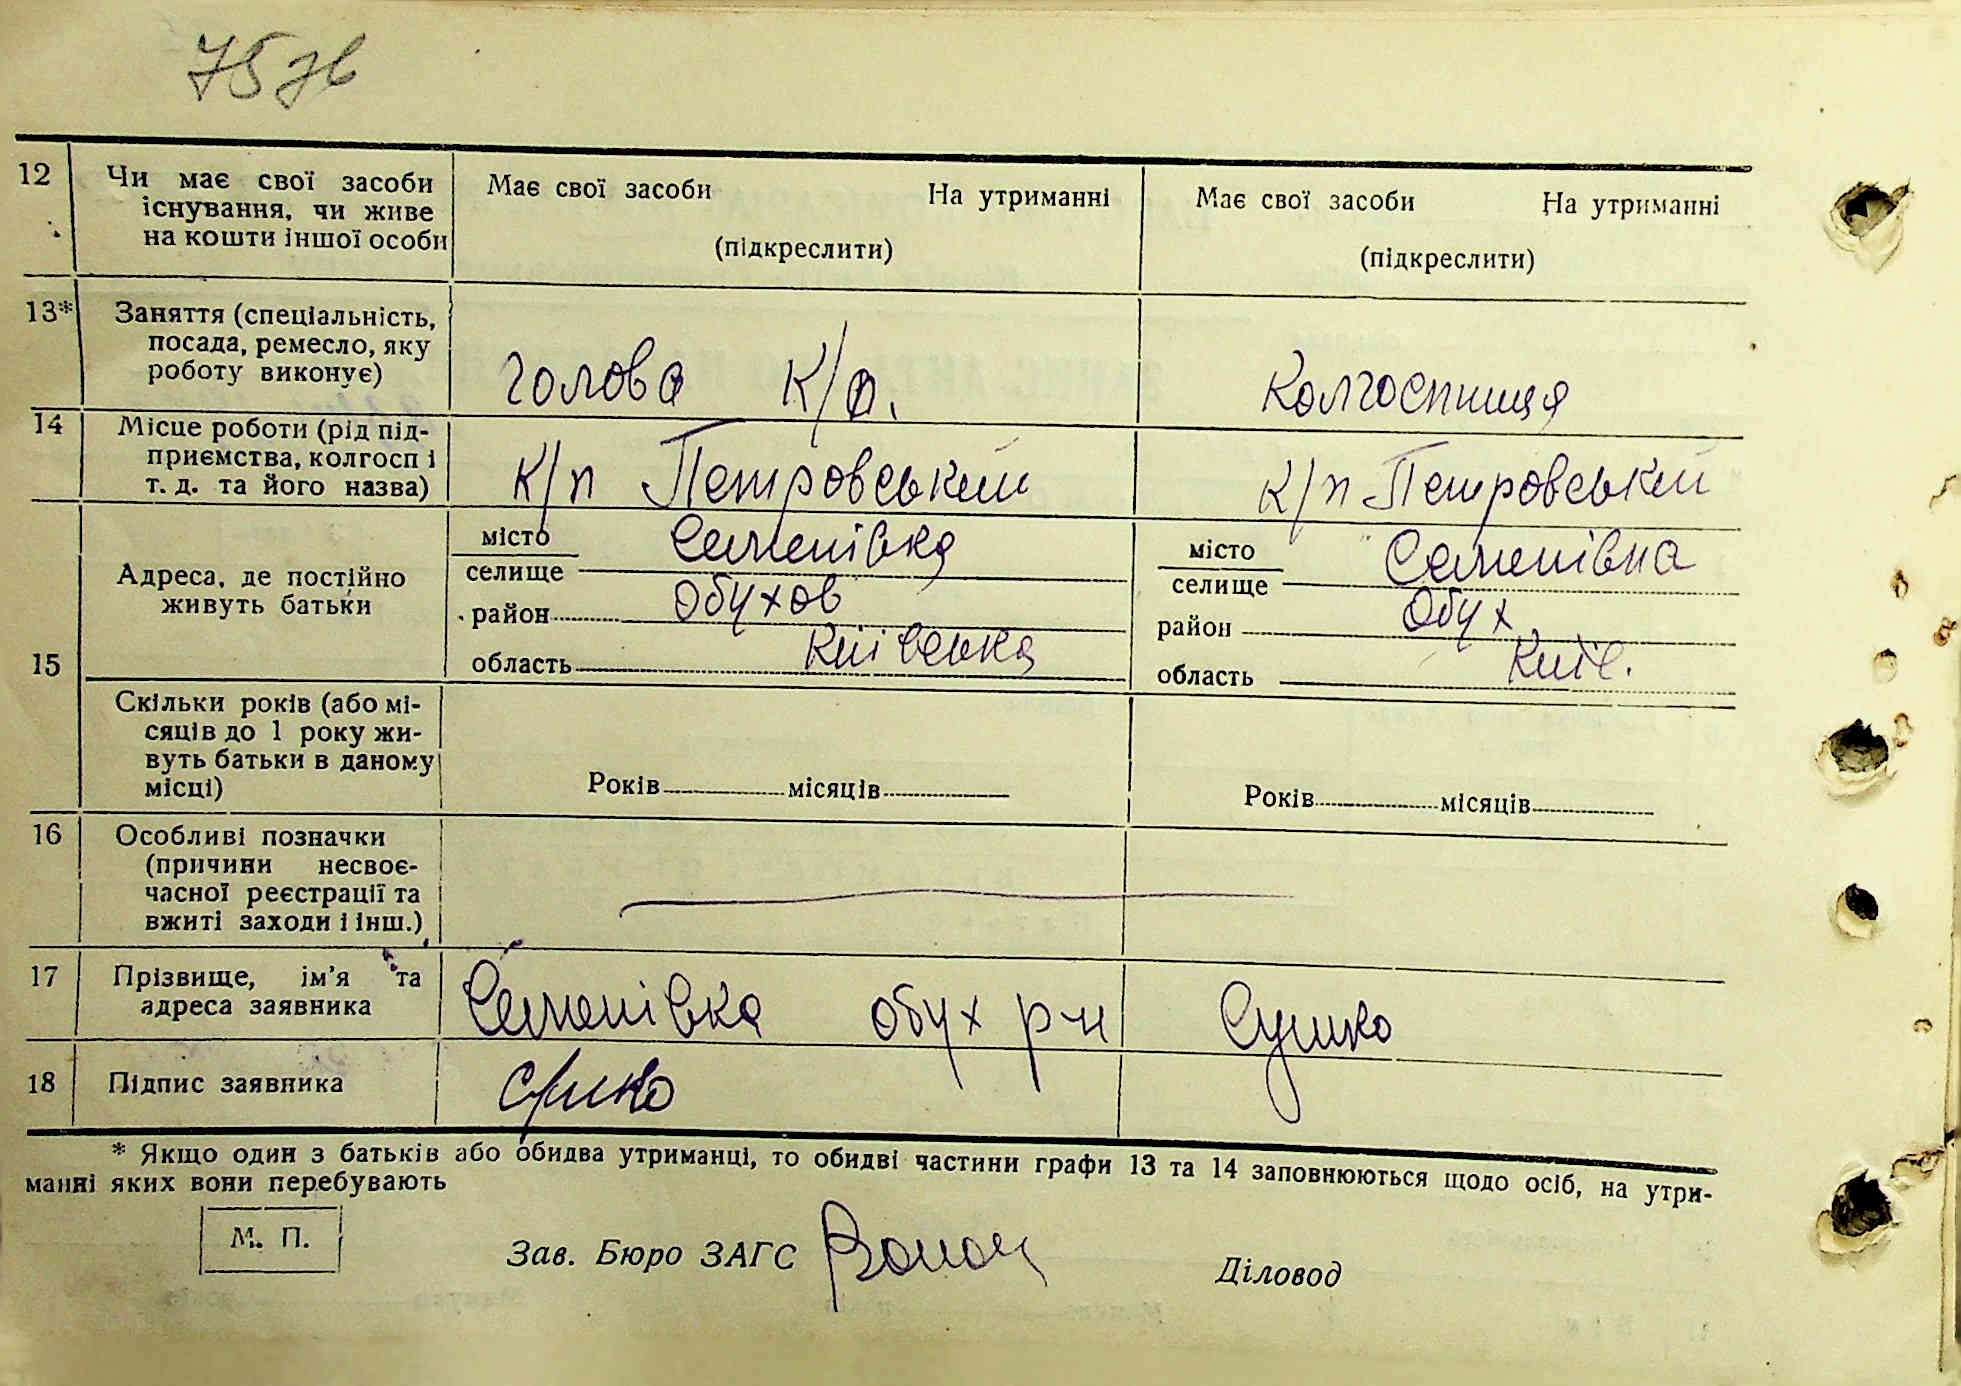 75 зв
12 Чи має свої засоби існування, чи живе на кошти іншої особи
Має свої засоби На утриманні
(підкреслити)
Має свої засоби На утриманні
(підкреслити)
13* Заняття (спеціальність, посада, ремесло, яку роботу виконує)
голова к/п.
Колгоспниця
14 Місце роботи (рід підприємства, колгосп і т. д. та його назва)
к/п Петровський
к/п Петровський
15 Адреса, де постійно живуть батьки
місто
селище Семенівка
район Обухов
область Київська
місто
селище Семенівка
район Обух
область Київ.
Скільки років (або місяців до 1 року живуть батьки в даному місці)
Років місяців
Років місяців
16 Особливі позначки (причини несвоєчасної реєстрації та вжиті заходи і інш.)
17 Прізвище, ім'я та адреса заявника
Семенівка обух р-н Сушко
18 Підпис заявника
Сушко
* Якщо один з батьків або обидва утриманці, то обидві частини графи 13 та 14 заповнюються щодо осіб, на утри-
манні яких вони перебувають
М. П.
Зав. Бюро ЗАГС
Діловод